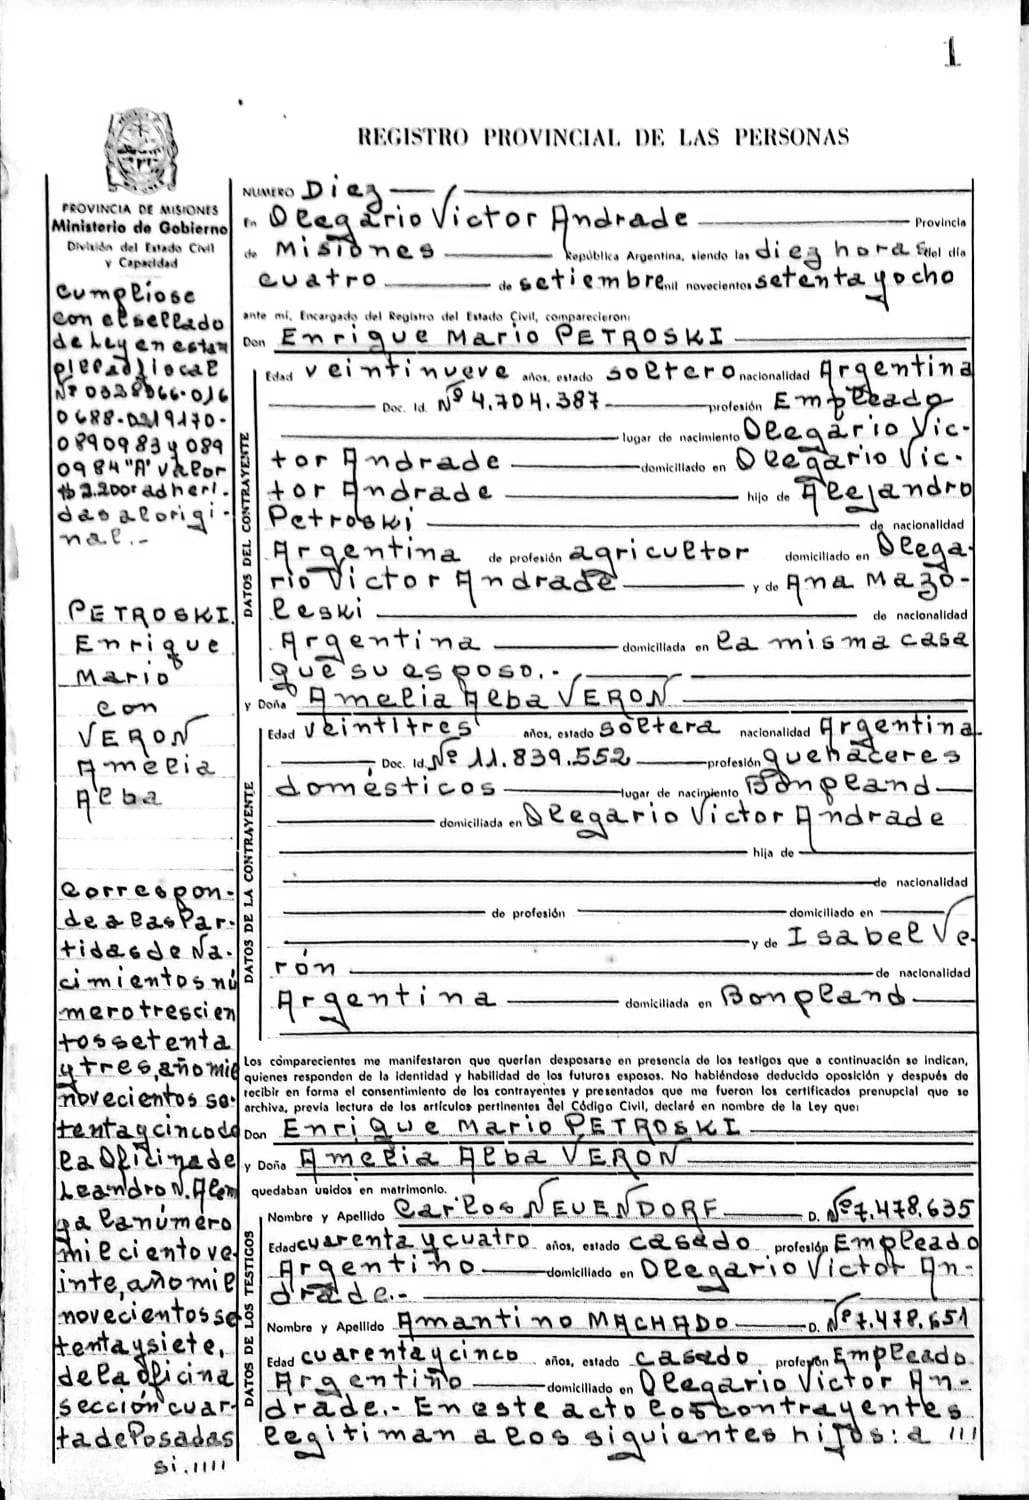 1
REGISTRO PROVINCIAL DE LAS PERSONAS
PROVINCIA DE MISIONES
Ministerio de Gobierno
División del Estado Civil
y Capacidad
Cumplíose
con el sellado
de Ley en estam
pillad fiscal
Nº 0328866-016
0688-0219170-
0890983 y 089
0984 "A" valor
$ 2.200 adheri-
das al origi-
nal.-
PETROSKI
Enrique
Mario
con
VERON
Amelia
Alba
Correspon-
de a las Par-
tidas de Na-
cimientos nú
mero trescien
tos setenta
y tres, año mil
novecientos se-
tenta y cinco de
la Oficina de
Leandro N. Alem
y a la número
mil ciento ve
inte, año mil
novecientos se
tenta y siete,
de la oficina
sección cuar-
ta de Posadas
si.////
NUMERO Diez
En Olegario Victor Andrade Provincia
de Misiones República Argentina, siendo las diez horas del día
cuatro de setiembre mil novecientos setenta y ocho
ante mí, Encargado del Registro del Estado Civil, comparecieron:
Don Enrique Mario PETROSKI
DATOS DEL CONTRAYENTE
Edad veintinueve años, estado soltero nacionalidad Argentina
Doc. Id. Nº 4.704.387 profesión Empleado
lugar de nacimiento Olegario Vic-
tor Andrade domiciliado en Olegario Vic-
tor Andrade hijo de Alejandro
Petroski de nacionalidad
Argentina de profesión agricultor domiciliado en Olega-
rio Victor Andrade y de Ana Mazo-
leski de nacionalidad
Argentina domiciliada en la misma casa
que su esposo.-
y Doña Amelia Alba VERON
DATOS DE LA CONTRAYENTE
Edad veintitres años, estado soltera nacionalidad Argentina
Doc. Id. Nº 11.839.552 profesión quehaceres
domésticos lugar de nacimiento Bonpland
domiciliada en Olegario Victor Andrade
hija de
de nacionalidad
de profesión domiciliado en
y de Isabel Ve
rón de nacionalidad
Argentina domiciliada en Bonpland
Los comparecientes me manifestaron que querían desposarse en presencia de los testigos que a continuación se indican,
quienes responden de la identidad y habilidad de los futuros esposos. No habiéndose deducido oposición y después de
recibir en forma el consentimiento de los contrayentes y presentados que me fueron los certificados prenupcial que se
archiva, previa lectura de los artículos pertinentes del Código Civil, declaré en nombre de la Ley que:
Don Enrique Mario PETROSKI
y Doña Amelia Alba VERON
quedaban unidos en matrimonio.
DATOS DE LOS TESTIGOS
Nombre y Apellido Carlos NEUENDORF D. Nº 7.478.635
Edad cuarenta y cuatro años, estado casado profesión Empleado
Argentino domiciliado en Olegario Victor An-
drade.-
Nombre y Apellido Amantino MACHADO D. Nº 7.478.651
Edad cuarenta y cinco años, estado casado profesión Empleado
Argentino domiciliado en Olegario Victor An-
drade.- En este acto los contrayentes
legitiman a los siguientes hijos: a ///